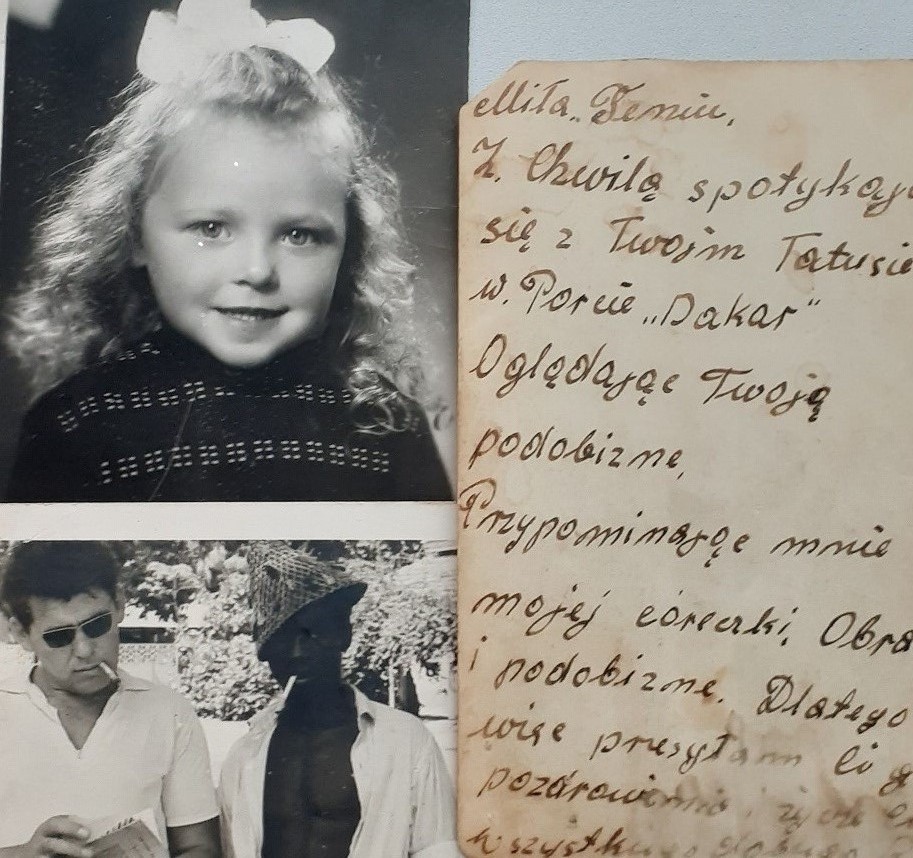 Miła „Teniu,
Z. Chwilą spotykając
się z Twojm Tatusie
w. Porcie „Dakar"
Oglądając Twoją
podobiznę,
Przypominając mnie
mojej córeczki, Obra
i podobiznę. Dlatego
więc presyłam Ci
pozdrowienia i
wszystkiego